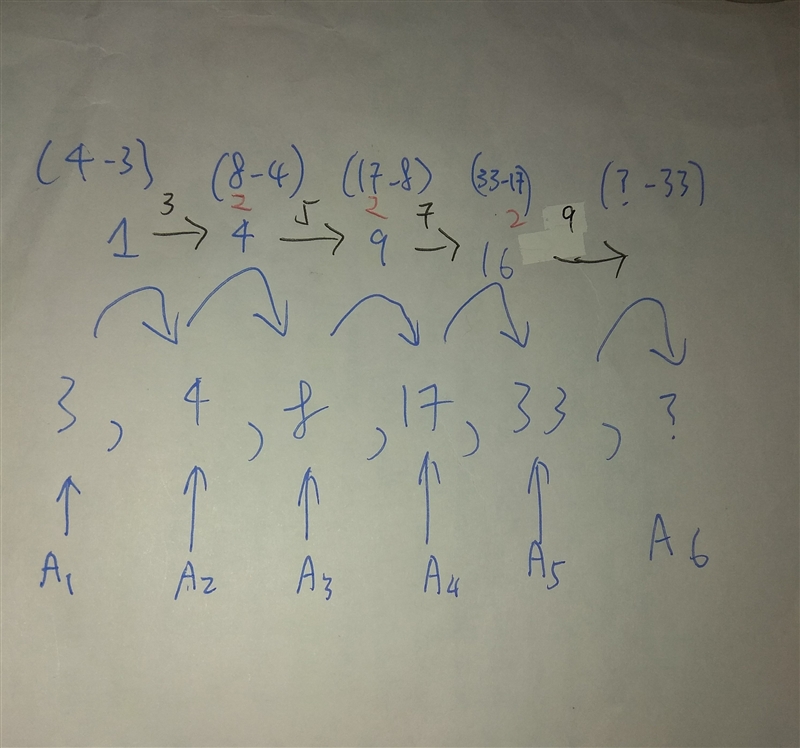 (4-3) (8-4) (17-8) (33-17) (?-33)
3 2 5 2 7 2 9
1 → 4 → 9 → 16 →
3, 4, 8, 17, 33, ?
A1 A2 A3 A4 A5 A6